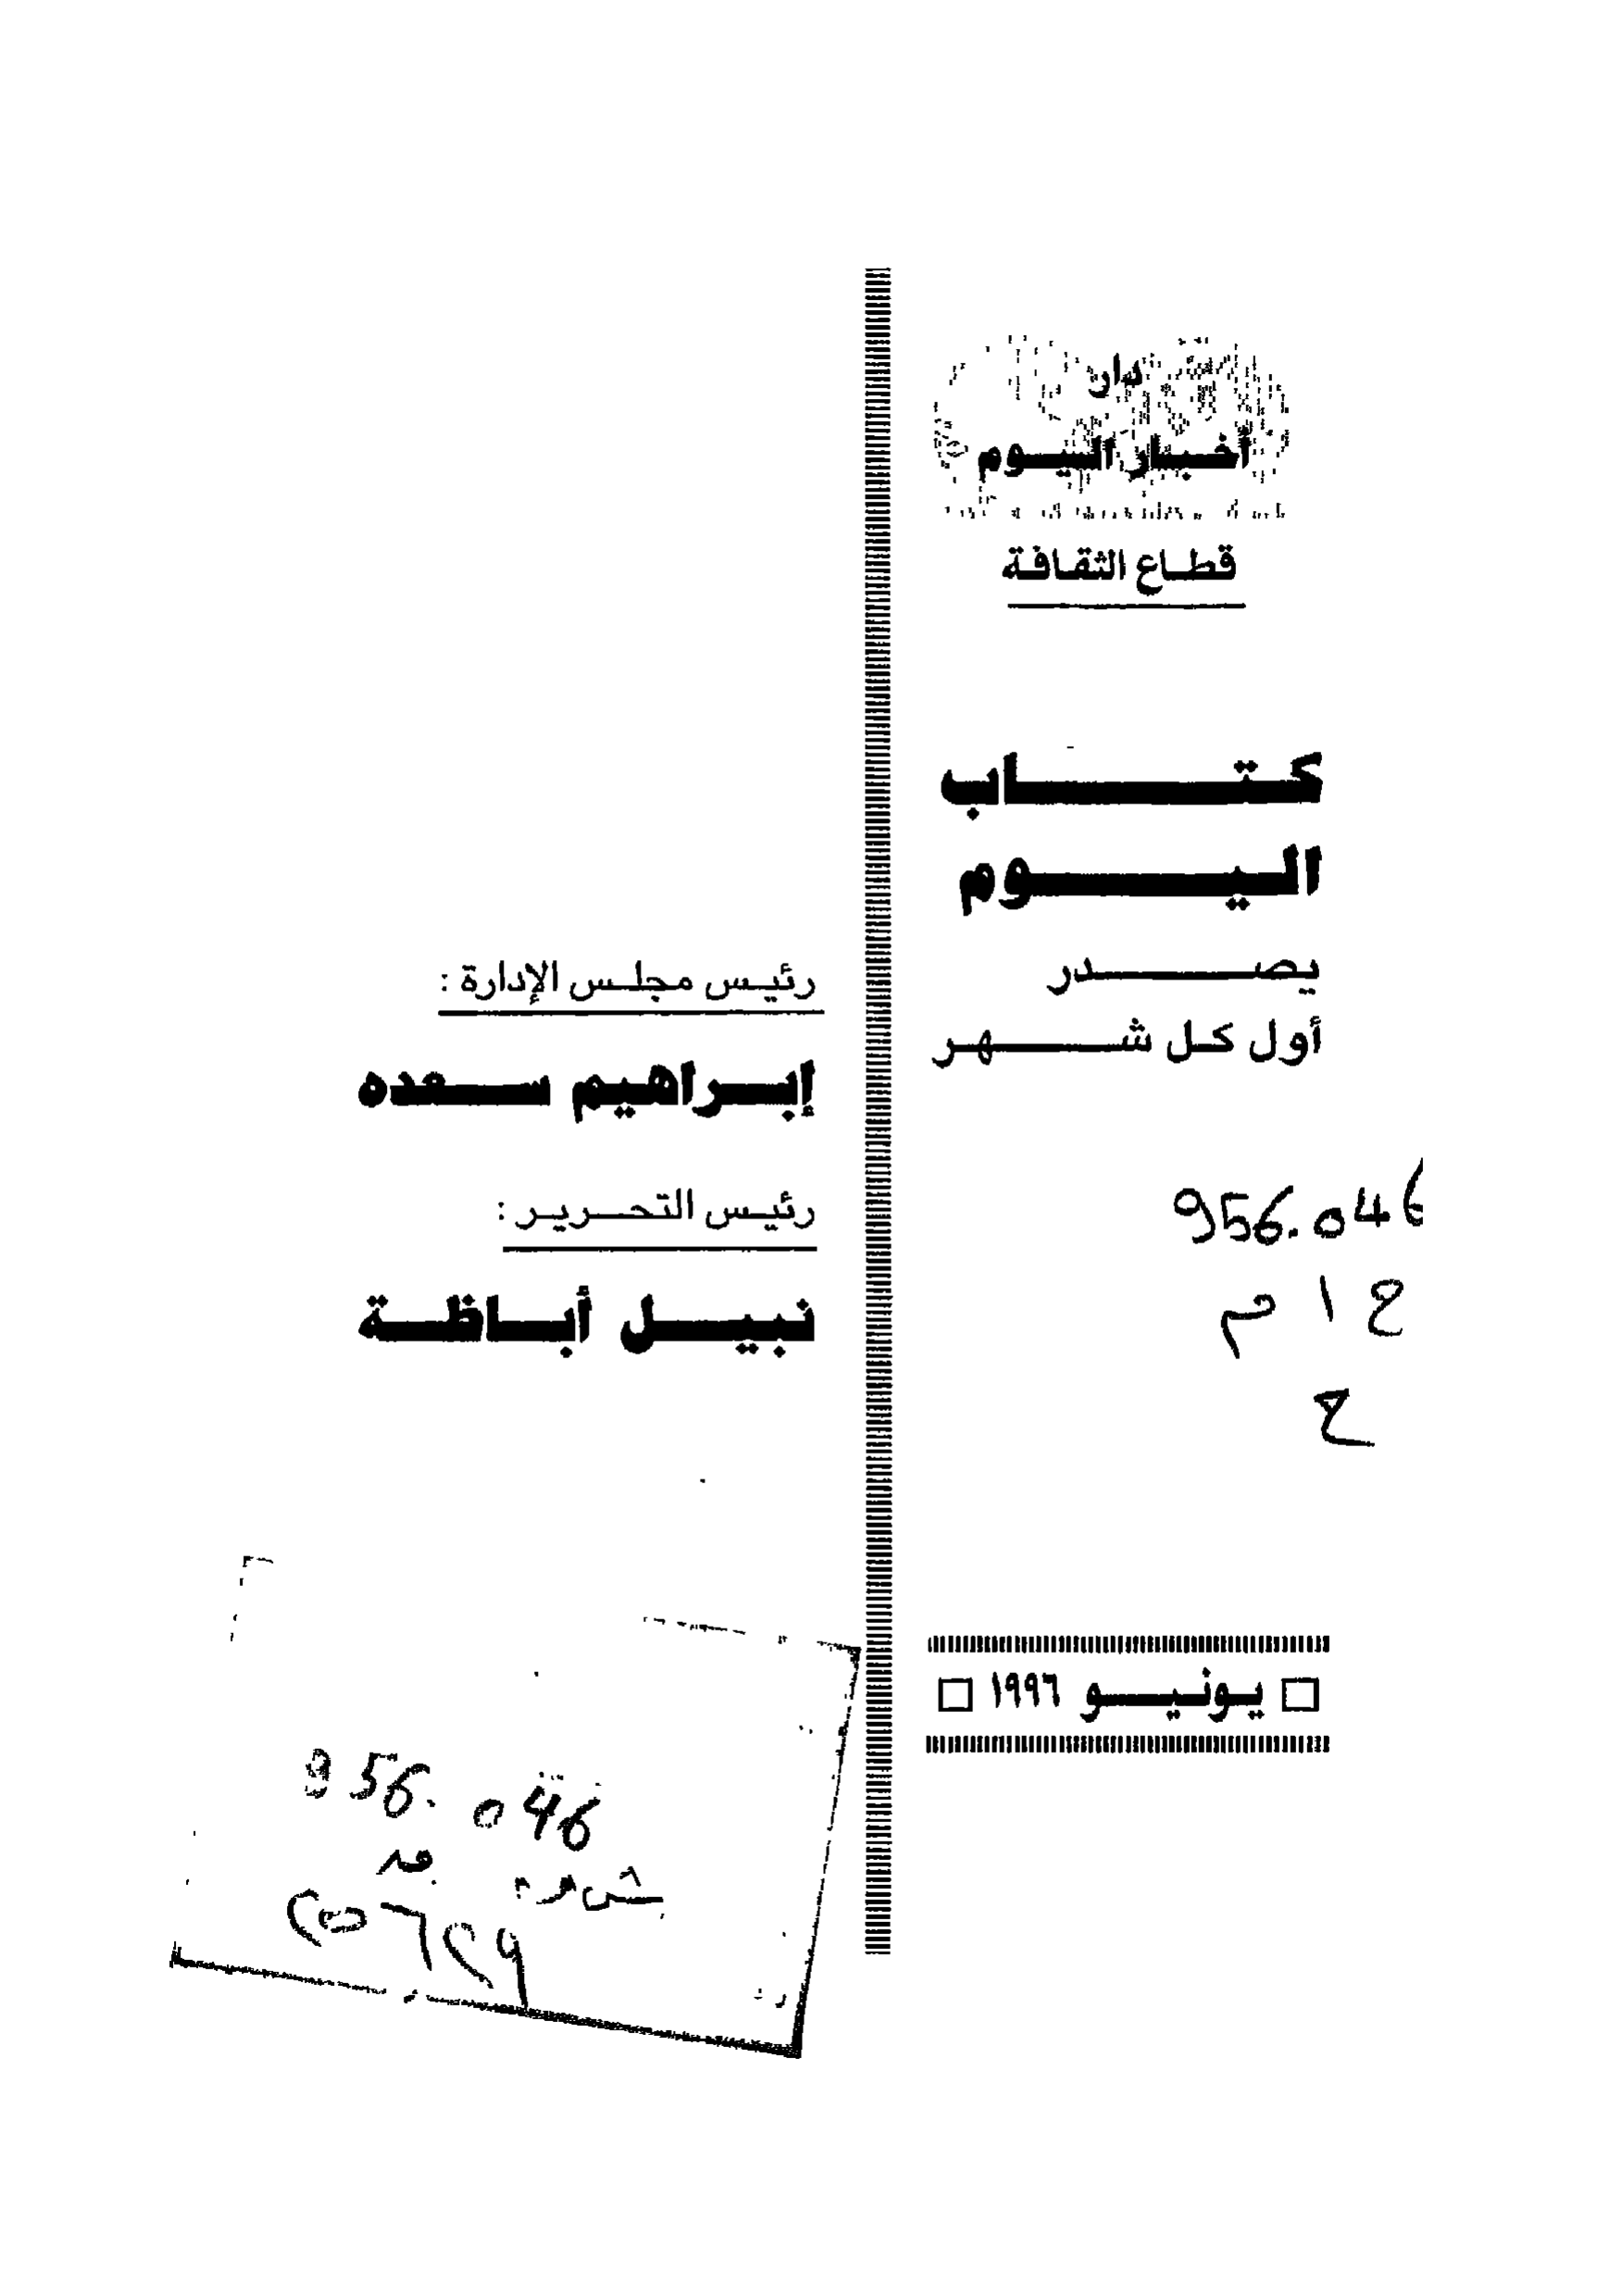 دار
أخبار اليوم
قطاع الثقافة
كتاب
اليوم
يصدر
أول كل شهر
956.046
ح ا م
ح
يونيو ١٩٩٦
رئيس مجلس الإدارة :
إبراهيم سعده
رئيس التحرير :
نبيل أباظة
956.046